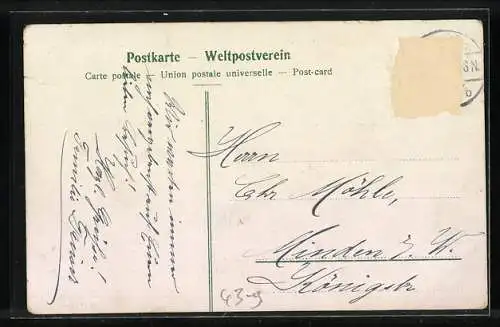 Postkarte - Weltpostverein
Carte postale - Union postale universelle - Post-card
Wir warten immer
auf
lieben
Herzl. Grüße!
Familie
Herrn
Chr Möhle,
Minden i. W.
Königstr
43-9
8 N
b